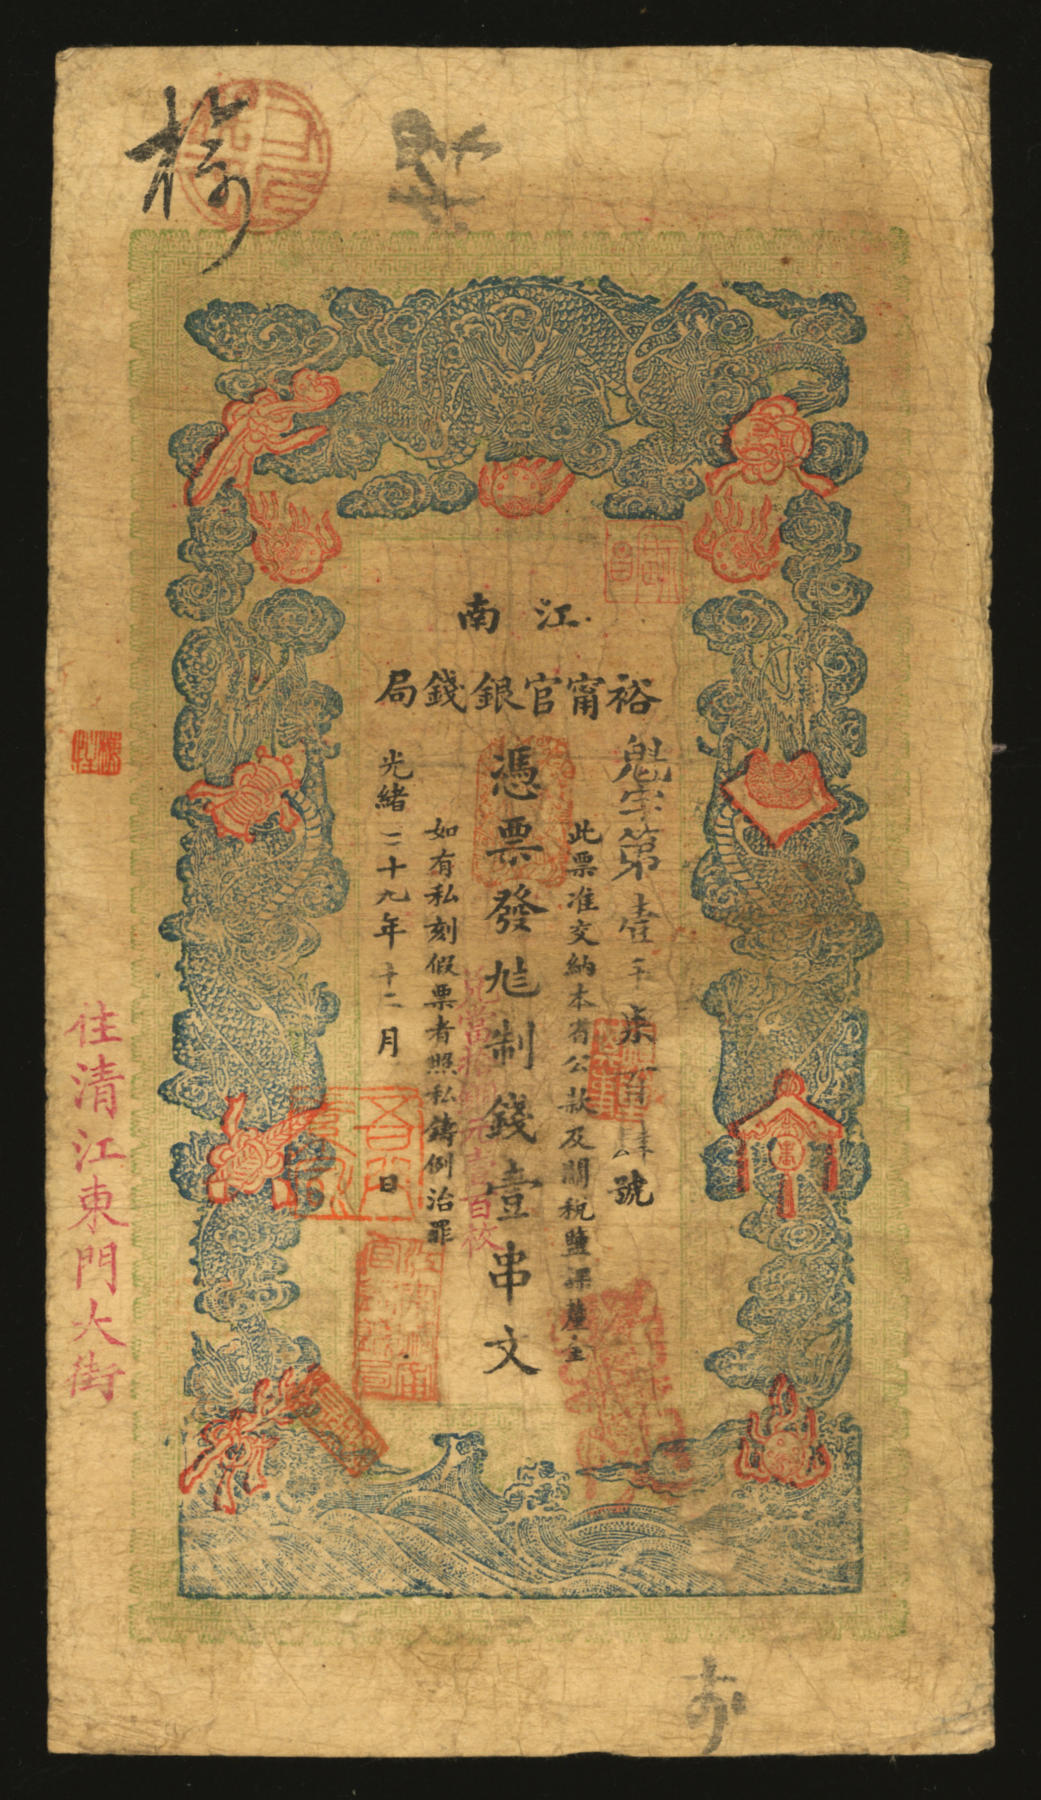 江南
裕甯官銀錢局
魁字第壹千柒百肆號
此票准交納本省公款及關稅鹽課釐金
憑票發足制錢壹串文
兌當拾銅元壹百枚
如有私刻假票者照私鑄例治罪
光緒二十九年十二月日
住清江東門大街